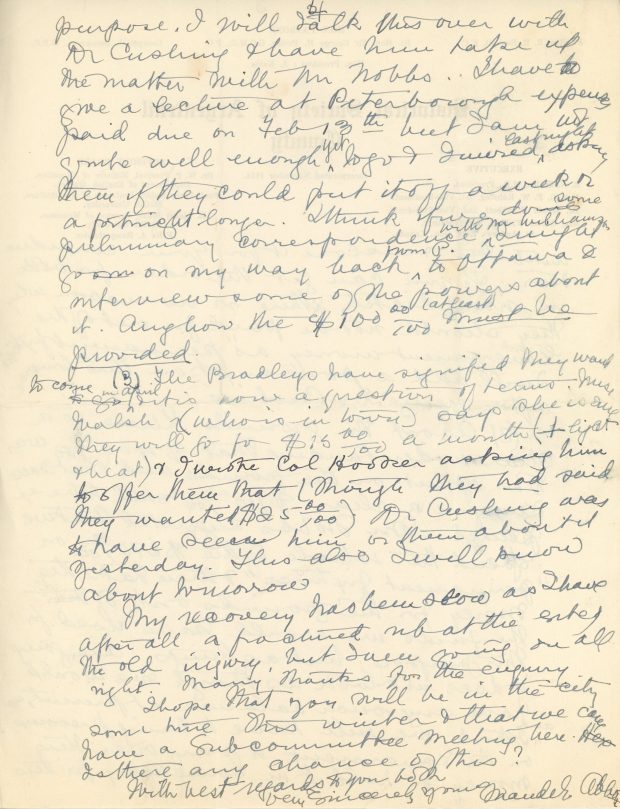 2
purpose. I will talk this over with
Dr Cushing & have him take up
the matter with Mr Nobbs. I have to
give a lecture at Peterborough expenses
paid due on Feb 13th but I am not
quite well enough yet to go & I wired last night asking
them if they could put it off a week or
a fortnight longer. I think if we done some
preliminary correspondence with Mr Williamson I might
go on on my way back from P. to Ottawa &
interview some of the powers about
it. Anyhow the $100 00/100 (at least) must be
provided.
(3) The Bradleys have signified they want
to come in April, it is now a question of terms. Miss
Walsh (who is in town) says she is sure
they will go for $15 00/100 a month (+ light
& heat) & I wrote Col Hooker asking him
to offer them that (though they had said
they wanted $25 00/100) Dr Cushing was
to have seen him or them about it
yesterday. This also I will know
about tomorrow
My recovery has been slow as I have
after all a fractured rib at the site of
the old injury, but I am going on all
right. Many thanks for the enquiry
I hope that you will be in the city
some time this winter & that we can
have a Subcommittee meeting here.
Is there any chance of this?
With best regards to you both
very sincerely yours Maude E Abbott